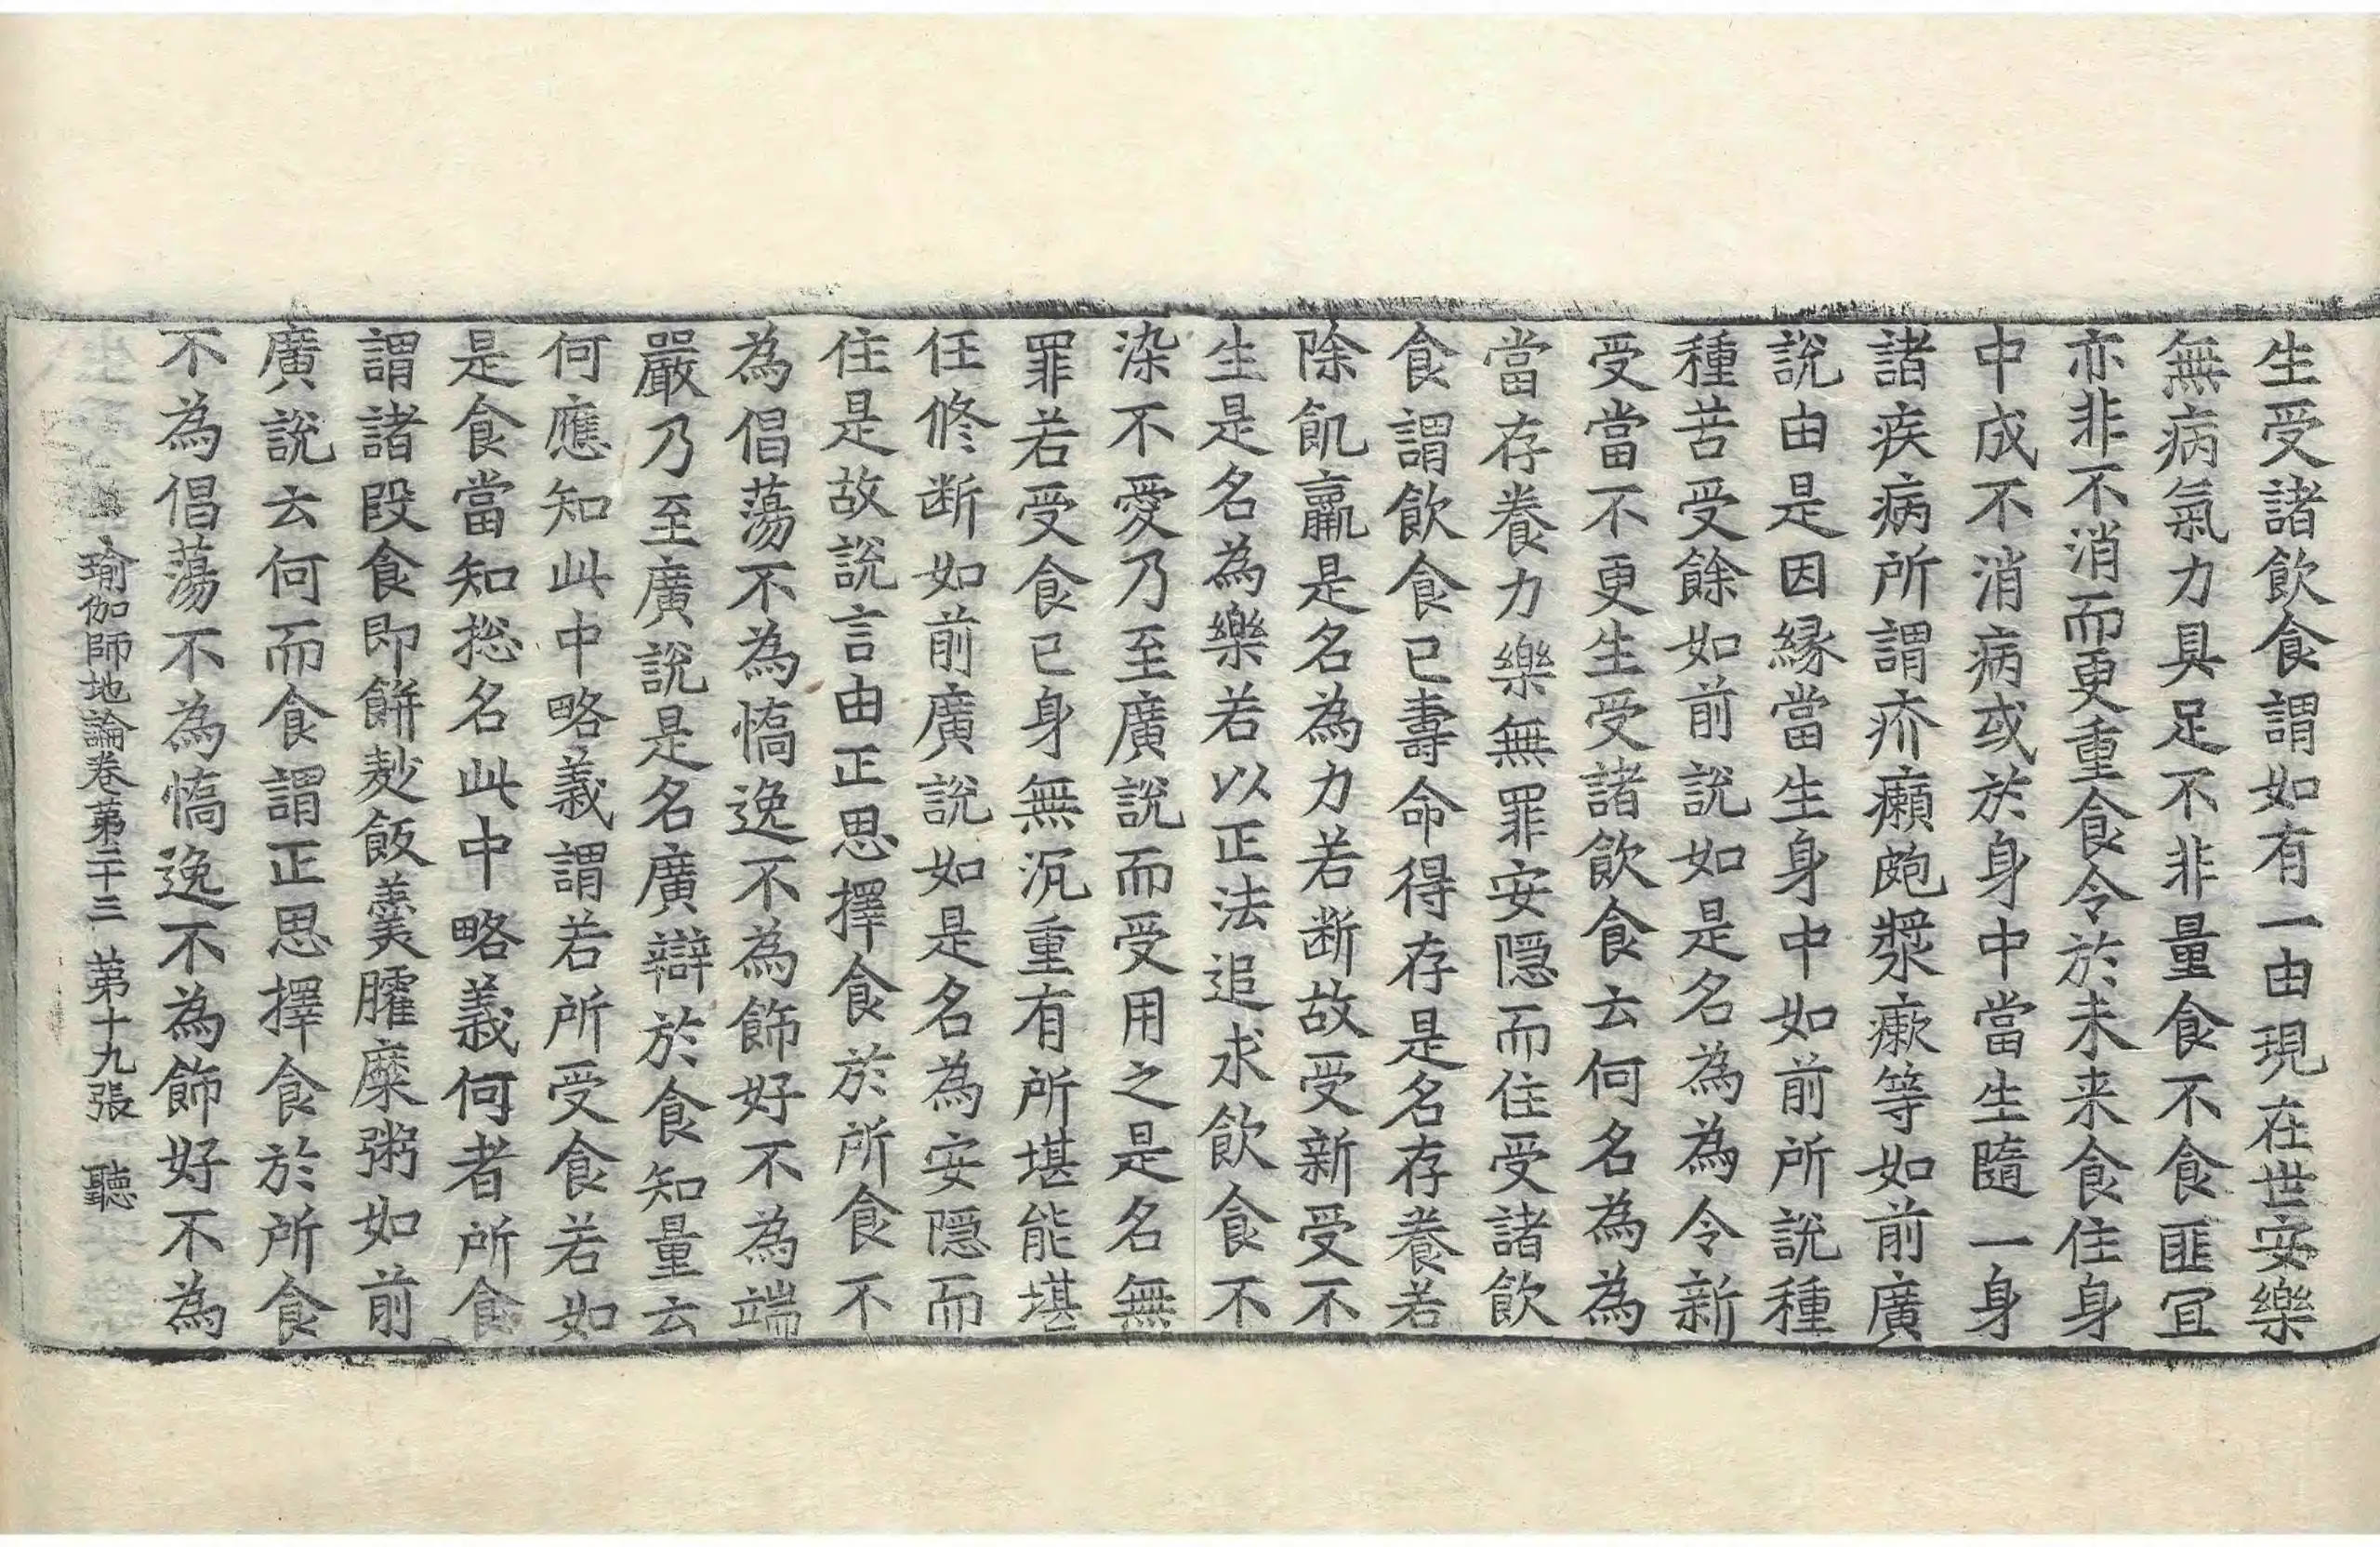 生受諸飲食謂如有一由現在世安樂
無病氣力具足不非量食不食匪宜
亦非不消而更重食令於未来食住身
中成不消病或於身中當生隨一身
諸疾病所謂疥癩皰漿瘷等如前廣
說由是因縁當生身中如前所說種
種苦受餘如前說如是名為為令新
受當不更生受諸飲食云何名為為
當存養力樂無罪安隱而住受諸飲
食謂飲食已壽命得存是名存養若
除飢羸是名為力若断故受新受不
生是名為樂若以正法追求飲食不
染不愛乃至廣說而受用之是名無
罪若受食已身無沉重有所堪能堪
任修断如前廣說如是名為安隱而
住是故說言由正思擇食於所食不
為倡蕩不為憍逸不為飾好不為端
嚴乃至廣說是名廣辯於食知量云
何應知此中略義謂若所受食若如
是食當知捴名此中略義何者所食
謂諸段食即餅麨飯羹臛糜粥如前
廣說云何而食謂正思擇食於所食
不為倡蕩不為憍逸不為飾好不為
瑜伽師地論卷第二十三 第十九張 聽